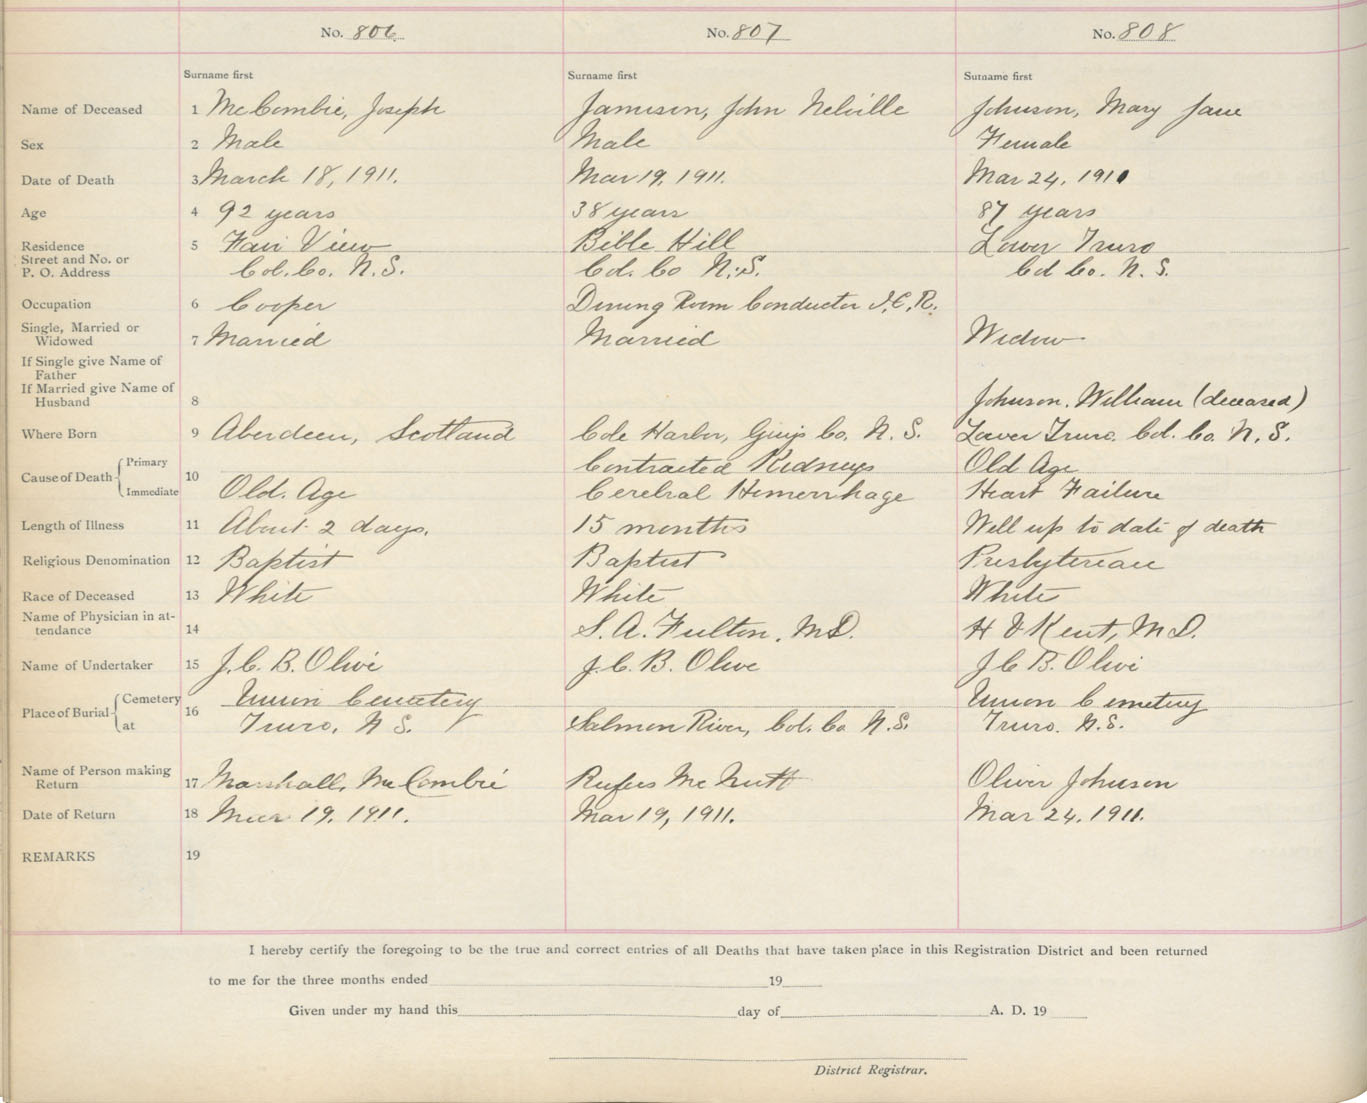 No. 806 No. 807 No. 808
Surname first Surname first Surname first
Name of Deceased 1 McCombie, Joseph Jamieson, John Nelville Johnson, Mary Jane
Sex 2 Male Male Female
Date of Death 3 March 18, 1911. Mar 19, 1911. Mar 24, 1911
Age 4 92 years 38 years 87 years
Residence 5 Fair View Bible Hill Lower Truro
Street and No. or
P. O. Address Col. Co. N.S. Col. Co N.S. Col Co. N.S.
Occupation 6 Cooper Dining Room Conductor I.C.R.
Single, Married or
Widowed 7 Married Married Widow
If Single give Name of
Father
If Married give Name of
Husband 8 Johnson, William (deceased)
Where Born 9 Aberdeen, Scotland Cole Harbor, Guys Co. N.S. Lower Truro. Col. Co. N.S.
Cause of Death Primary 10 Contracted Kidneys Old Age
Immediate Old. Age Cerebral Hemorrhage Heart Failure
Length of Illness 11 About 2 days. 15 months Well up to date of death
Religious Denomination 12 Baptist Baptist Presbyterian
Race of Deceased 13 White White White
Name of Physician in at-
tendance 14 S. A. Fulton, M.D. H V Kent, M.D.
Name of Undertaker 15 J. C. B. Olive J. C. B. Olive J C B. Olive
Place of Burial Cemetery 16 Union Cemetery Union Cemetery
at Truro, N S. Salmon River, Col. Co N.S. Truro. N.S.
Name of Person making
Return 17 Marshall, McCombie Rufus McNutt Oliver Johnson
Date of Return 18 Mar 19, 1911. Mar 19, 1911. Mar 24, 1911.
REMARKS 19
I hereby certify the foregoing to be the true and correct entries of all Deaths that have taken place in this Registration District and been returned
to me for the three months ended 19
Given under my hand this day of A. D. 19
District Registrar.